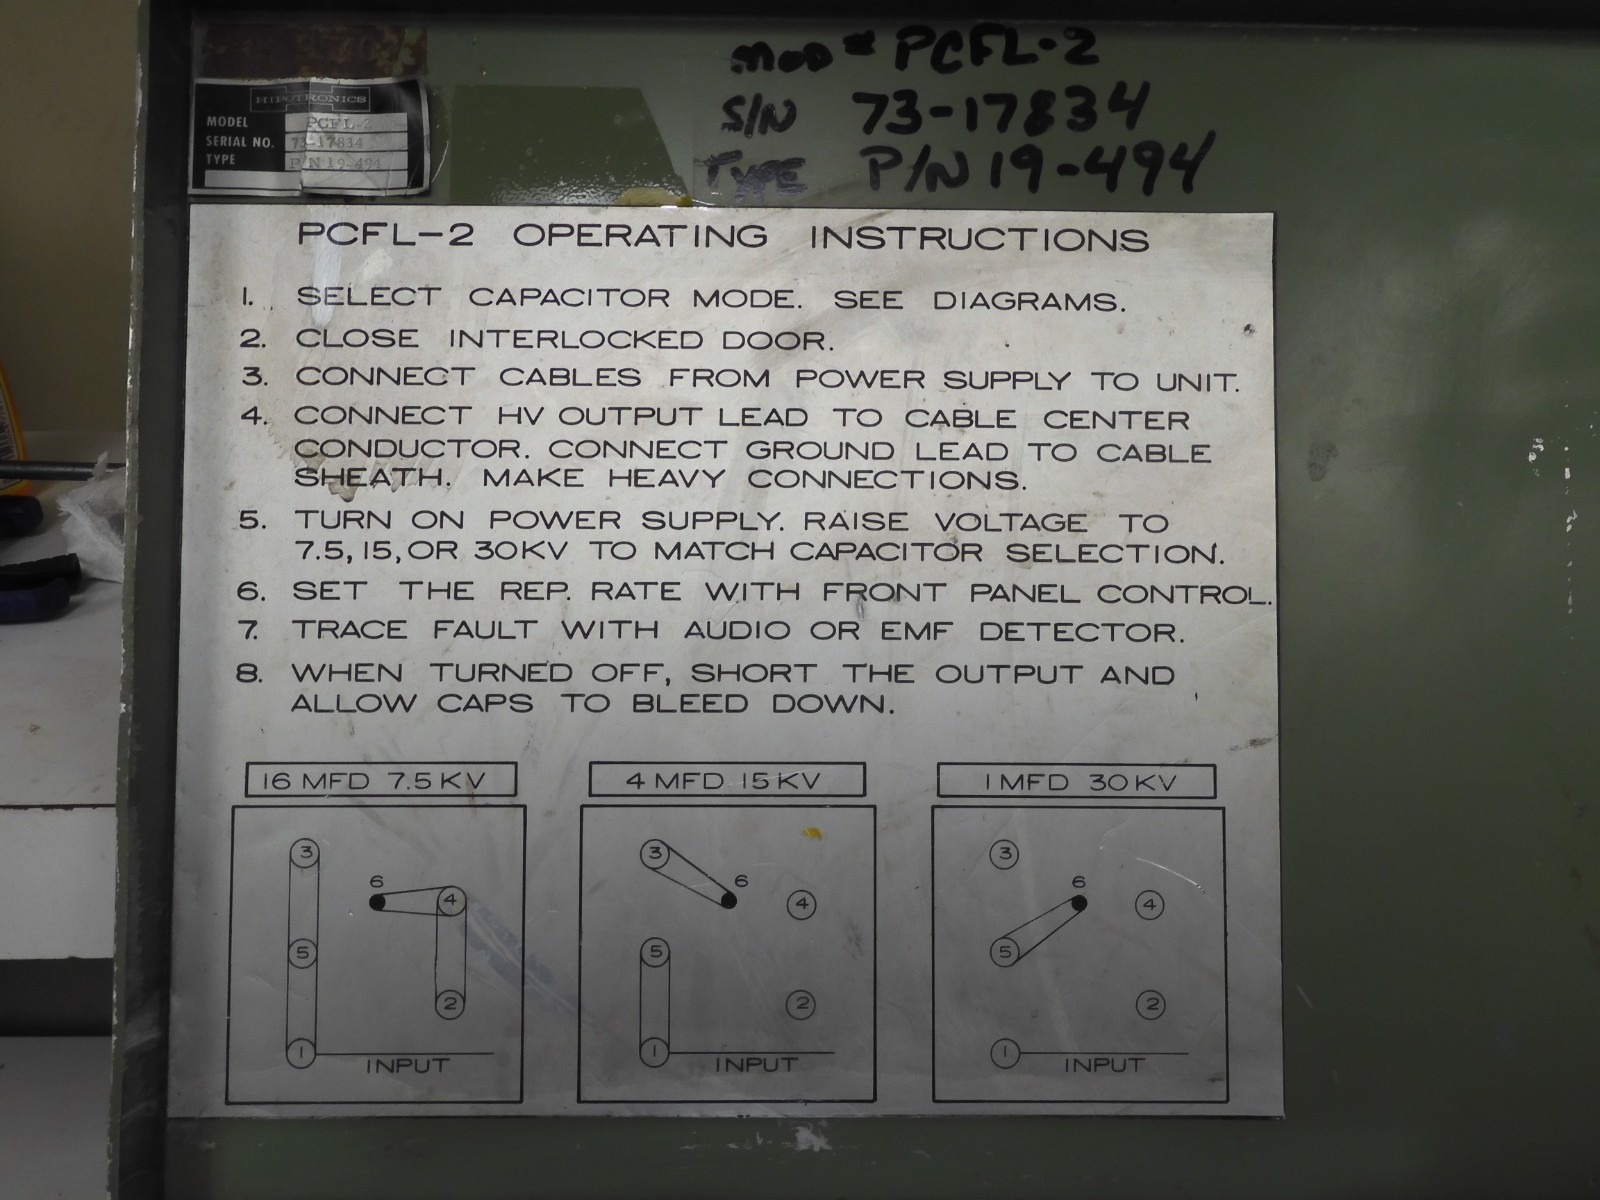 mOD # PCFL-2
S/N 73-17834
TYPE P/N 19-494
HIPOTRONICS
MODEL PCFL-2
SERIAL NO. 73-17834
TYPE P/N 19-494
PCFL-2 OPERATING INSTRUCTIONS
1. SELECT CAPACITOR MODE. SEE DIAGRAMS.
2. CLOSE INTERLOCKED DOOR.
3. CONNECT CABLES FROM POWER SUPPLY TO UNIT.
4. CONNECT HV OUTPUT LEAD TO CABLE CENTER
CONDUCTOR. CONNECT GROUND LEAD TO CABLE
SHEATH. MAKE HEAVY CONNECTIONS.
5. TURN ON POWER SUPPLY. RAISE VOLTAGE TO
7.5, 15, OR 30KV TO MATCH CAPACITOR SELECTION.
6. SET THE REP. RATE WITH FRONT PANEL CONTROL.
7. TRACE FAULT WITH AUDIO OR EMF DETECTOR.
8. WHEN TURNED OFF, SHORT THE OUTPUT AND
ALLOW CAPS TO BLEED DOWN.
16 MFD 7.5 KV
3
6
4
5
2
1
INPUT
4 MFD 15 KV
3
6
4
5
2
1
INPUT
1 MFD 30 KV
3
6
4
5
2
1
INPUT